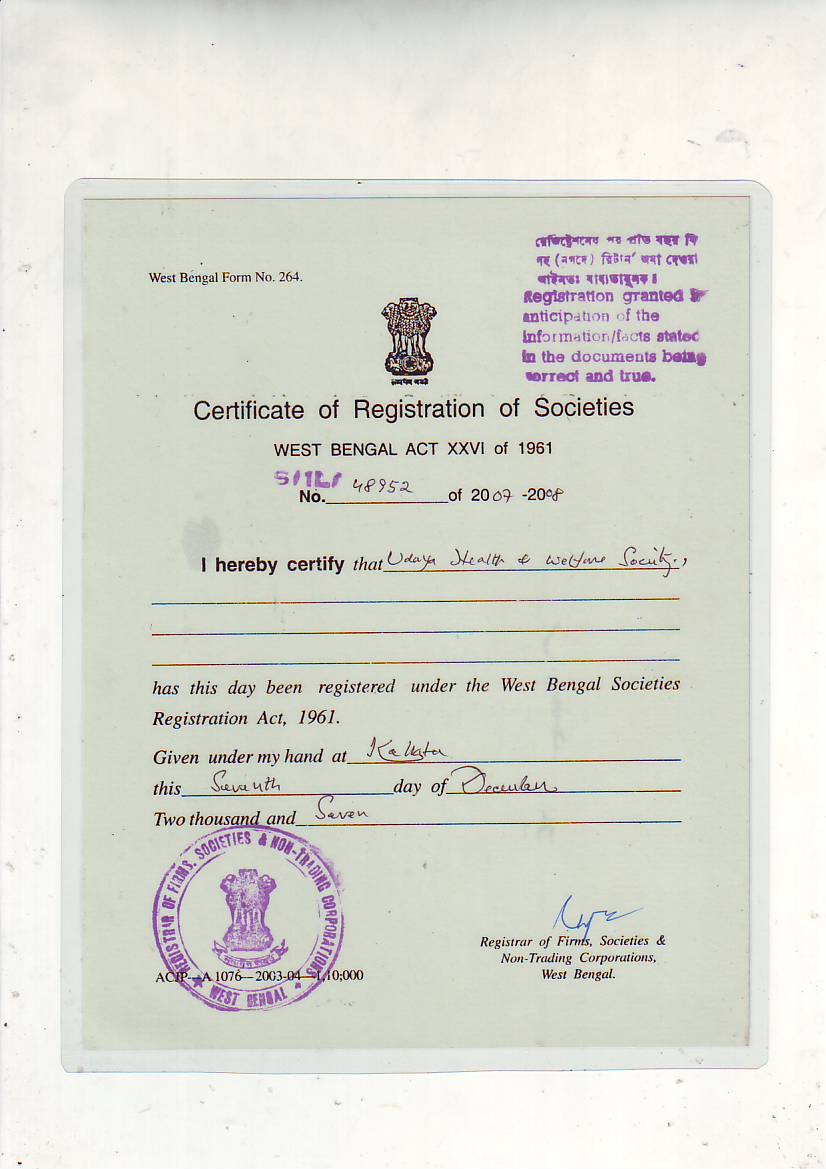 West Bengal Form No. 264.
রেজিস্ট্রেশনের পর প্রতি বছর ফি
সহ (নগদে) রিটার্ন জমা দেওয়া
আইনতঃ বাধ্যতামূলক।
Registration granted in
anticipation of the
information/facts stated
in the documents being
correct and true.
Certificate of Registration of Societies
WEST BENGAL ACT XXVI of 1961
S/1L/
No. 48952 of 2007 -2008
I hereby certify that Udaya Health & Welfare Society.,
has this day been registered under the West Bengal Societies
Registration Act, 1961.
Given under my hand at Kolkata
this Seventh day of December
Two thousand and Seven
REGISTRAR OF FIRMS, SOCIETIES & NON-TRADING CORPORATIONS
WEST BENGAL
Registrar of Firms, Societies &
Non-Trading Corporations,
West Bengal.
ACIP—A 1076—2003-04—1,10,000